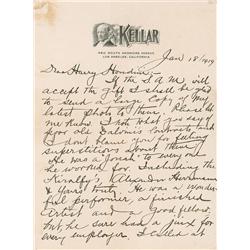 KELLAR
460 SOUTH ARDMORE AVENUE,
LOS ANGELES, CALIFORNIA
Jan 18/1919
Dear Harry Houdini:-
If the S.A.M. will
accept the gift I shall be glad
to send a large Copy of My
latest Photo to them. Please let
me know. I note what you say of
poor old Salerno's contracts, and
I don't blame you for feeling
superstitious about them
He was a Jonah to every one
he worked for Including the
Kiralfy's, Alexander Herrmann
& Yours truly. He was a wonder-
ful performer, a finished
Artist and a Good fellow,
but he sure had a jinx for
every employer. I called at